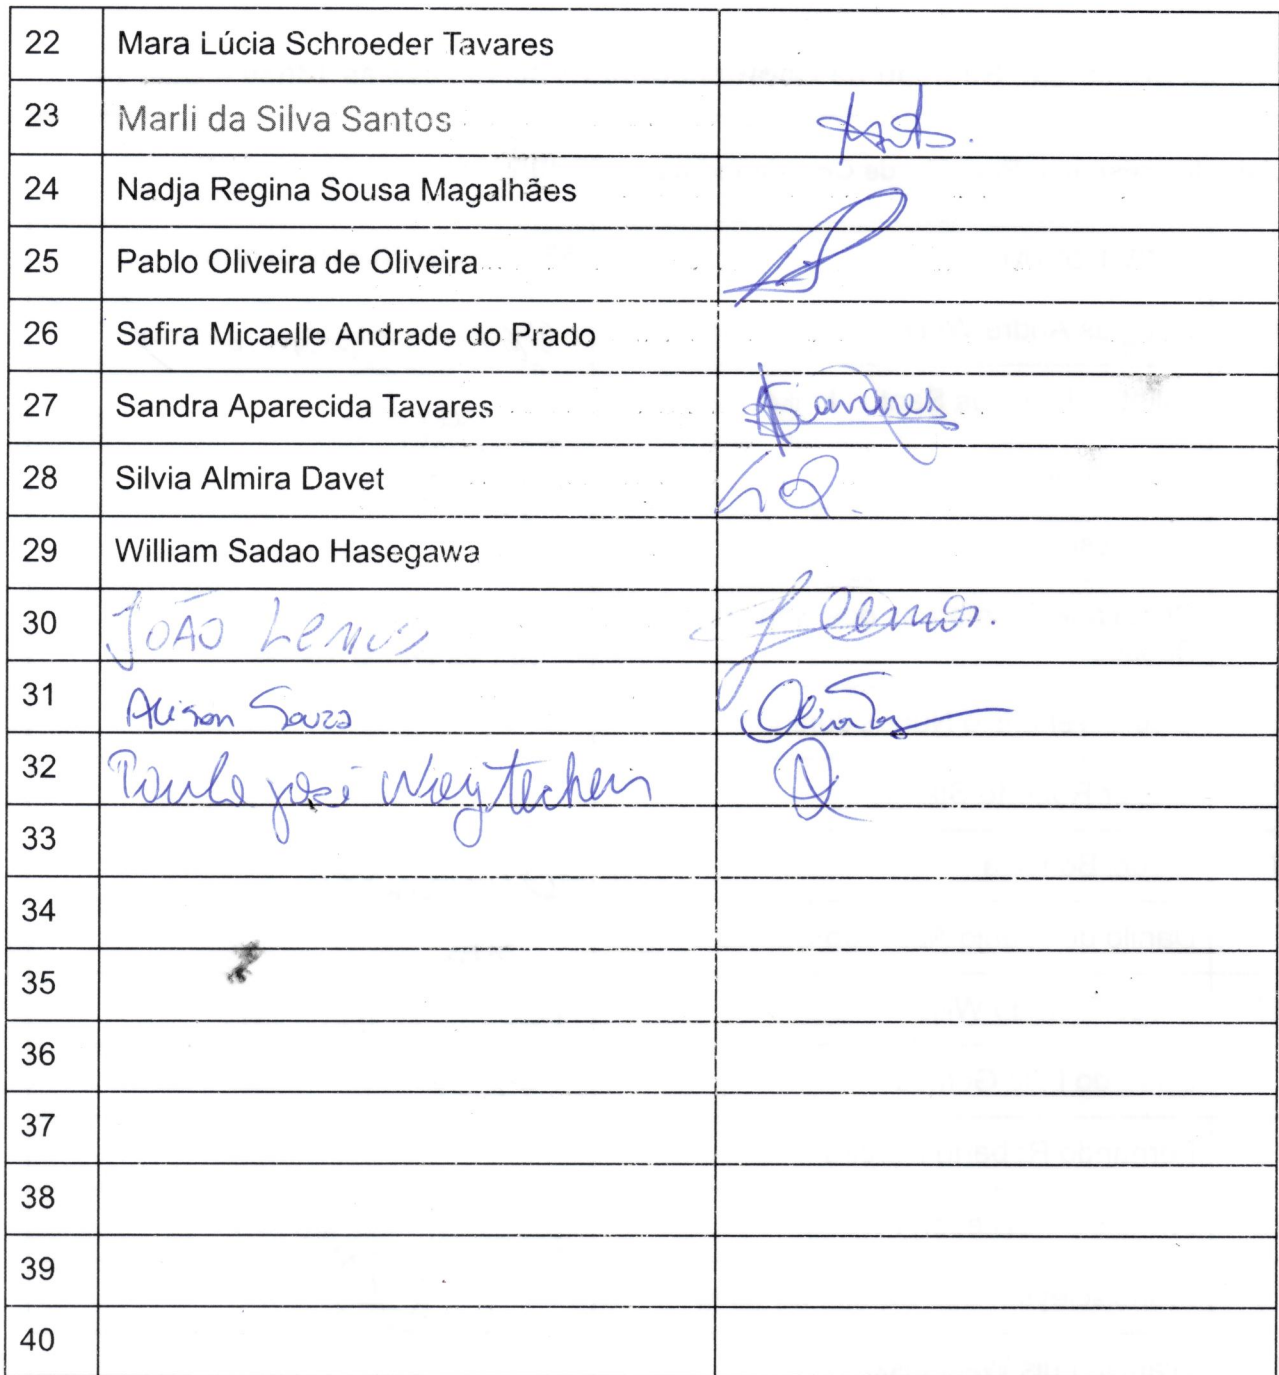 22 Mara Lúcia Schroeder Tavares
23 Marli da Silva Santos
24 Nadja Regina Sousa Magalhães
25 Pablo Oliveira de Oliveira
26 Safira Micaelle Andrade do Prado
27 Sandra Aparecida Tavares Tavares
28 Silvia Almira Davet
29 William Sadao Hasegawa
30 JOÃO LEMOS Lemos.
31 Alison Souza
32 José
33
34
35
36
37
38
39
40